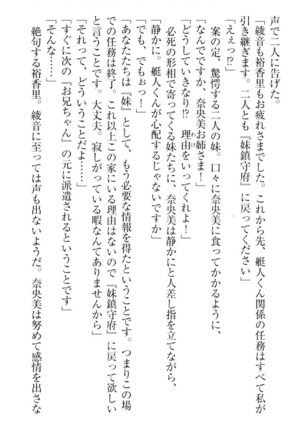 声で二人に告げた。
「綾音も裕香里もお疲れさまでした。これから先、艇人くん関係の任務はすべて私が
引き継ぎます。二人とも『妹鎮守府』に戻ってください」
「えぇっ!?」
案の定、驚愕する二人の妹。口々に奈央美に食ってかかるように、
「なんでですか、奈央美お姉さま！」
「どうしていきなり!?　理由をいってくれよ！」
必死の形相で寄ってくる妹たちに、奈央美は静かにと人差し指を立てながら、
「静かに。艇人くんが心配するじゃないですか」
「で、でもぉっ！」
「あなたたちは『妹』として、もう必要な情報を得たということです。つまりこの場
での任務は終了。これ以上この家にいる理由はないので『妹鎮守府』に戻って欲しい
と言うことです。大丈夫。寂しがっている暇なんてありませんから」
「それって、どういうことだよ……」
「すぐに次の『お兄ちゃん』の元に派遣されるということです」
「そんな……」
絶句する裕香里。綾音に至っては声も出ないようだ。奈央美は努めて感情を出さな